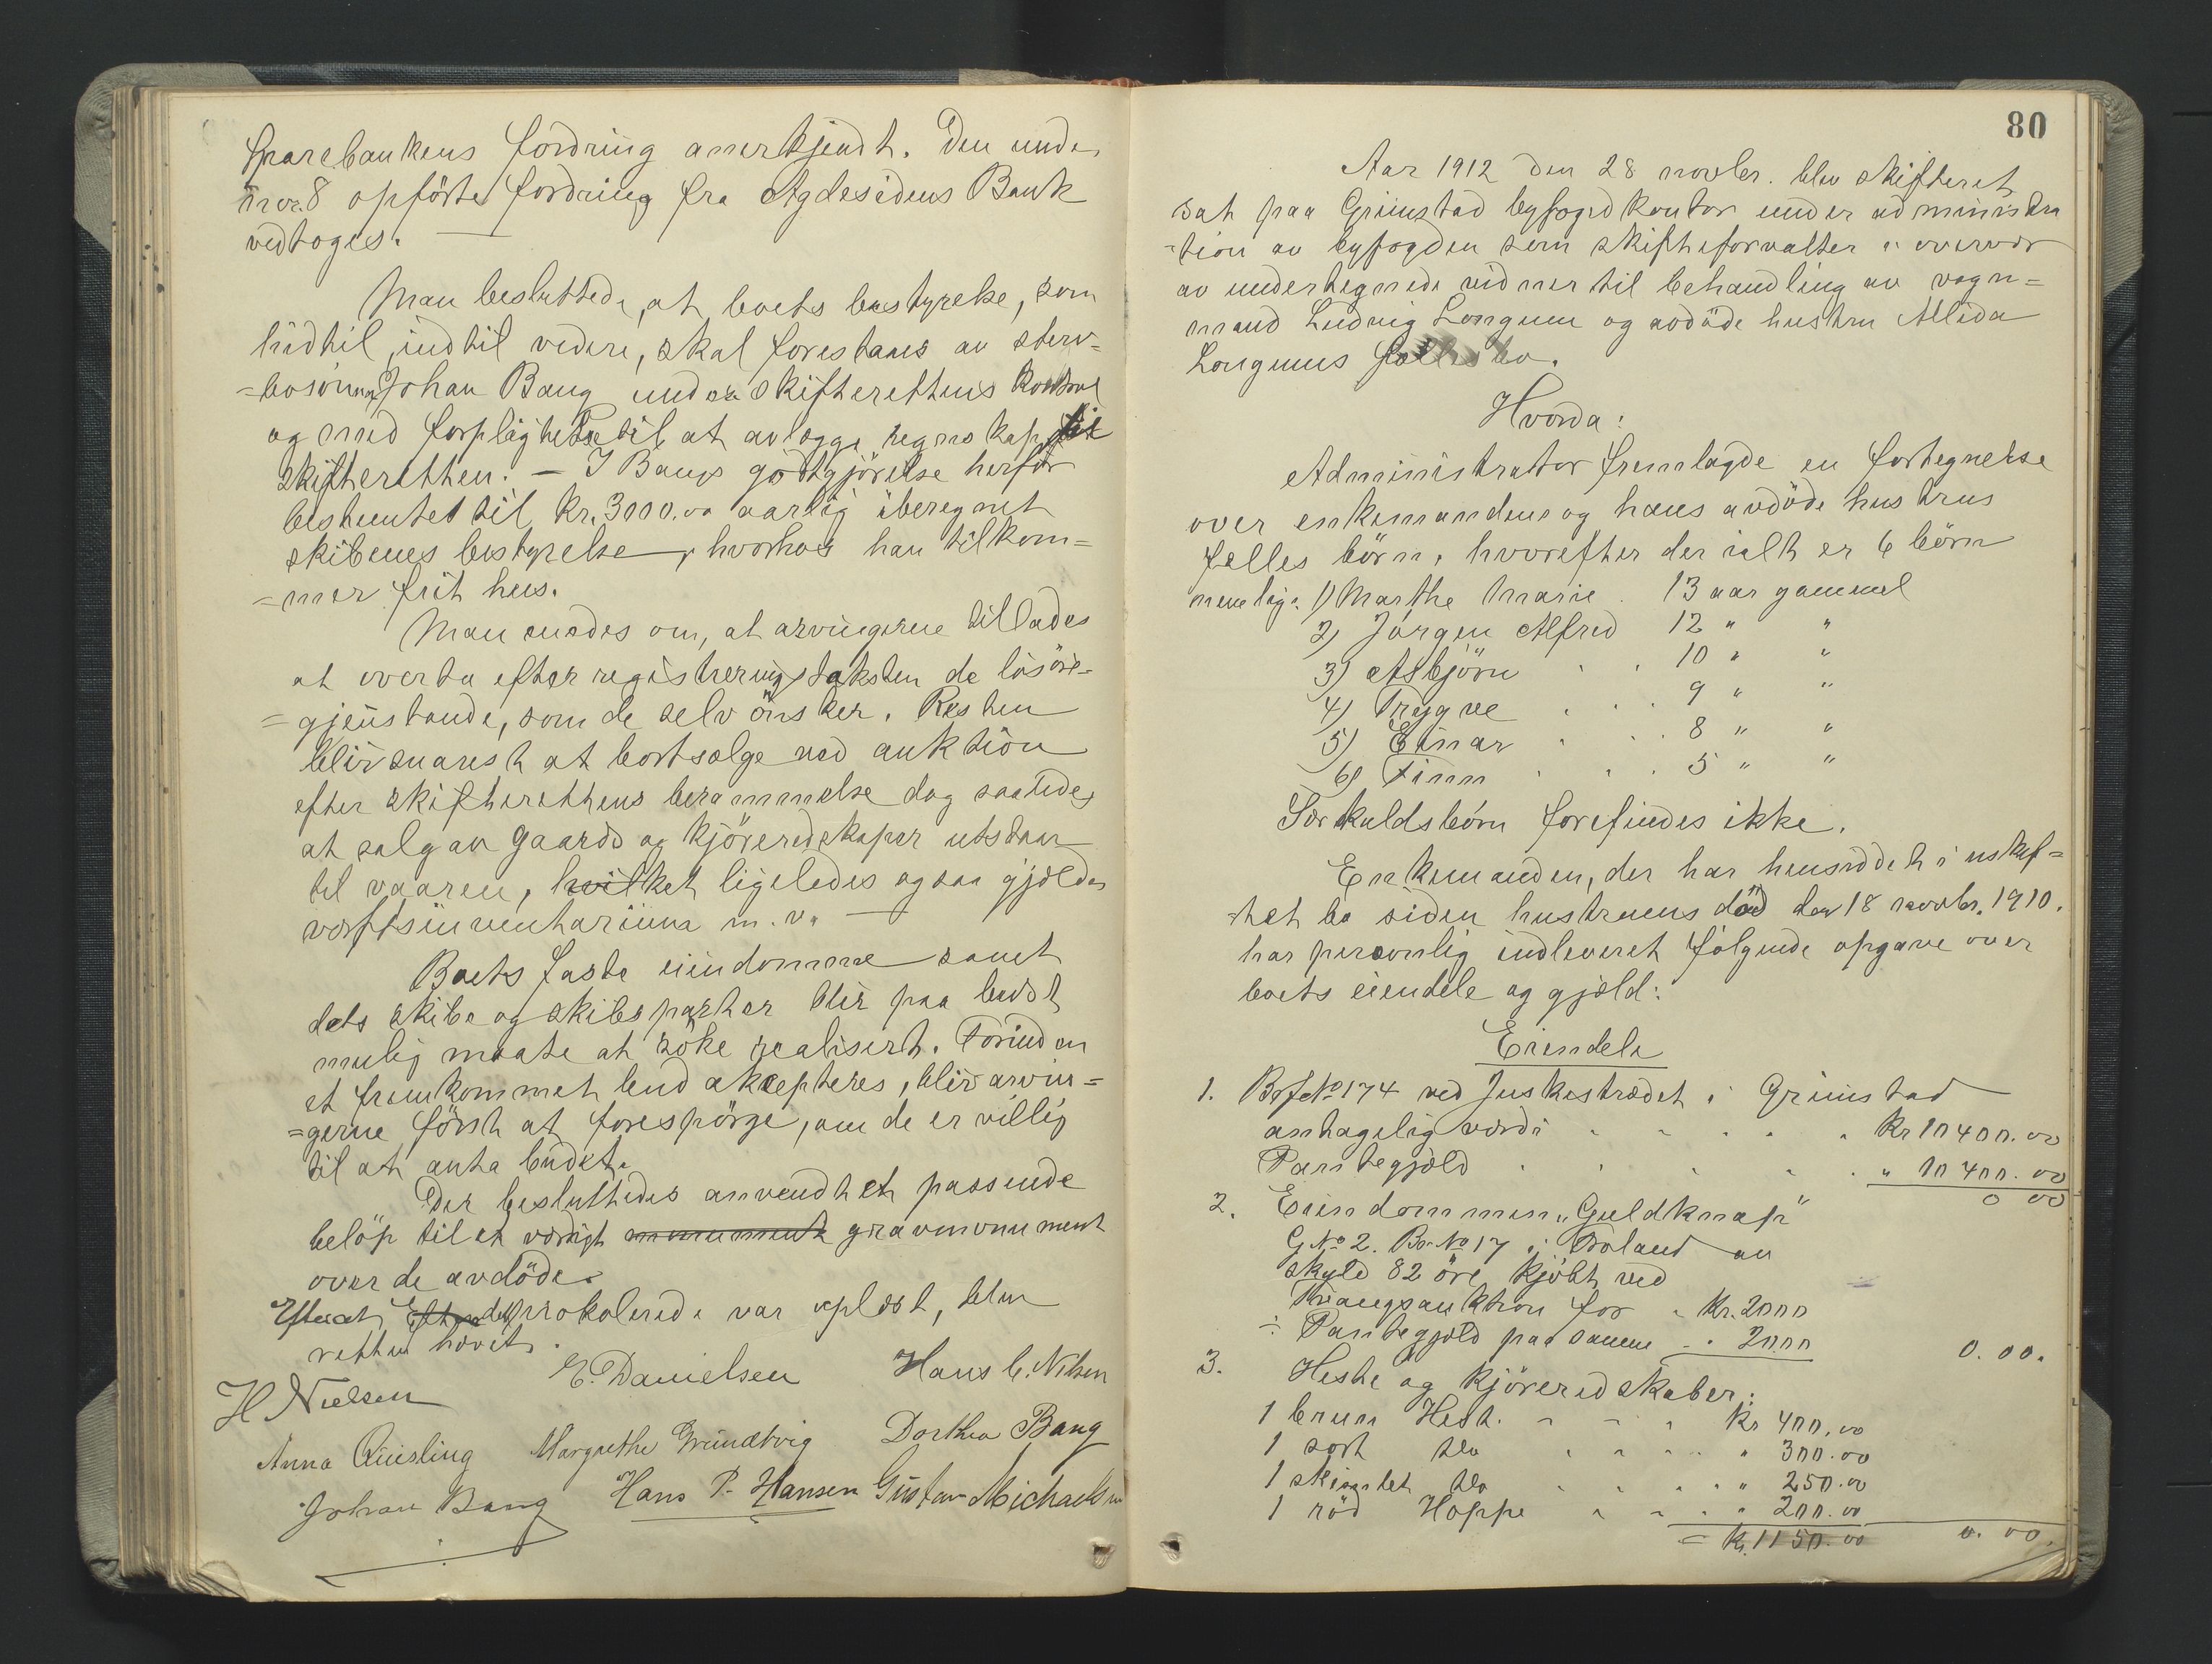 sparebankens fordring anerkjendt. Den under
nr. 8 opförte fordring fra Agdesidens Bank
vedtoges.
Man besluttede, at boets bestyrelse, som
hidtil, indtil videre, skal forestaaes av sterv-
=bosönnen Johan Bang under skifterettens kontrol
og med forpligtelse til at avlægge regnskap til
skifteretten. — J Bangs godtgjörelse herfor
bestemtes til kr. 3000.00 aarlig iberegnet
skibenes bestyrelse, hvorhos han tilkom=
=mer frit hus.
Man enedes om, at arvingerne tillades
at overta efter registreringstaksten de lösöre-
=gjenstande, som de selv önsker. Resten
blir snarest at bortsælge ved auktion
efter skifterettens berammelse dog saaledes
at salg av gaards og kjöreredskaper utstaar
til vaaren, hvilket ligeledes ogsaa gjælder
verftsinventarium m. v.
Boets faste eiendomme samt
dets skibe og skibsparter blir paa bedst
mulig maate at söke realisert. Forinden
et fremkommet bud aksepteres, blir arvin=
=gerne först at forespörge, om de er villig
til at anta budet.
Der besluttedes anvendt et passende
belöp til et værdigt monument gravmonument
over de avdöde.
Efterat Efter det protokolerede var oplæst, blev
retten hævet.
H Nielsen E. Danielsen Hans C. Nilsen
Anna Quisling Margrethe Grundtvig Dorthea Bang
Johan Bang Hans P. Hansen Gustav Michaelsen
80
Aar 1912 den 28 novbr. blev skifteret
sat paa Grimstad byfogdkontor under administra
=tion av byfogden som skifteforvalter i overvær
av undertegnede vidner til behandling av vogn=
mand Ludvig Longum og avdöde hustru Alida
Longums fællesbo.
Hvorda:
Administrator fremlagde en fortegnelse
over enkemandens og hans avdöde hustrus
felles börn, hvorefter der ialt er 6 börn
nemlig: 1) Marthe Marie . 13 aar gammel
2) Jörgen Alfred 12 " "
3) Asbjörn . . 10 " "
4) Trygve . . . 9 " "
5) Einar . . . 8 " "
6) Finn . . . 5 " "
Særkuldsbörn forefindes ikke.
Enkemanden, der har hensiddet i uskif=
=tet bo siden hustruens död den 18 novbr. 1910.
har personlig indleveret fölgende opgave over
boets eiendele og gjæld:
Eiendele
1. Brf No 174 ved Juskestrædet i Grimstad
antagelig værdi . . . . . Kr 10400.00
Pantegjæld . . . . . " 10400.00
0 00
2. Eiendommen "Guldknap"
G No 2. Br No 17 i Froland av
skyld 82 öre kjöbt ved
Tvangsauktion for . Kr. 2000
÷ Pantegjæld paa samme . . 2000 0.00.
3. Heste og kjöreredskaber:
1 brun Hest. . . . Kr 400.00
1 sort do . . . . " 300.00
1 skimlet do . . . . " 250.00
1 röd Hoppe . . . . " 200.00
= Kr. 1150.00 0.00.